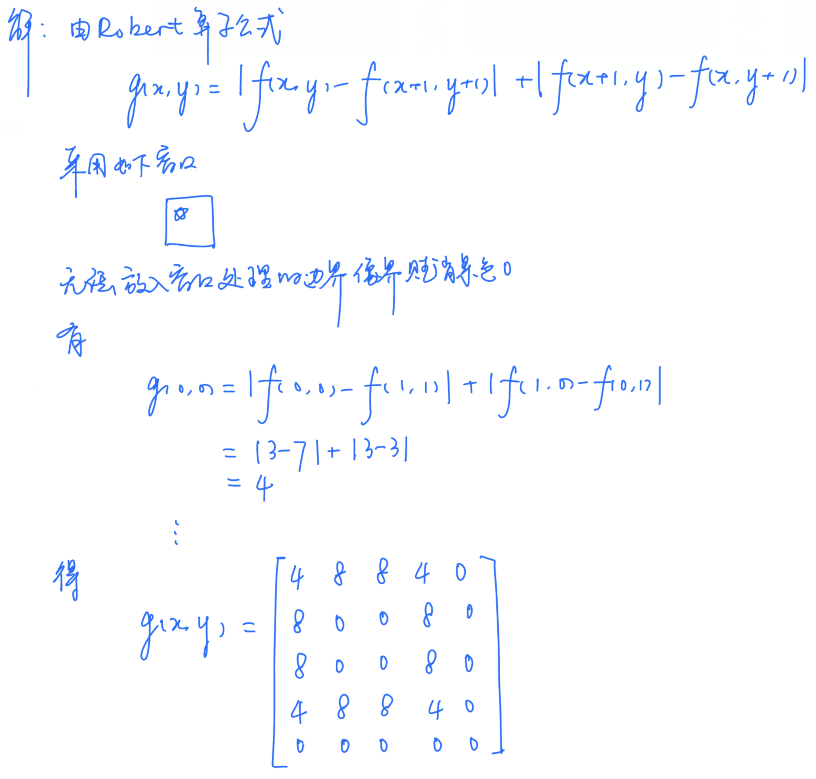 解：由Robert算子公式
g(x,y) = |f(x,y) - f(x+1,y+1)| + |f(x+1,y) - f(x,y+1)|
采用如下窗口
无法放入窗口处理的边界像界赋背景色0
有
g(0,0) = |f(0,0) - f(1,1)| + |f(1,0) - f(0,1)|
= |3-7| + |3-3|
= 4
⋮
得
g(x,y) =
4 8 8 4 0
8 0 0 8 0
8 0 0 8 0
4 8 8 4 0
0 0 0 0 0